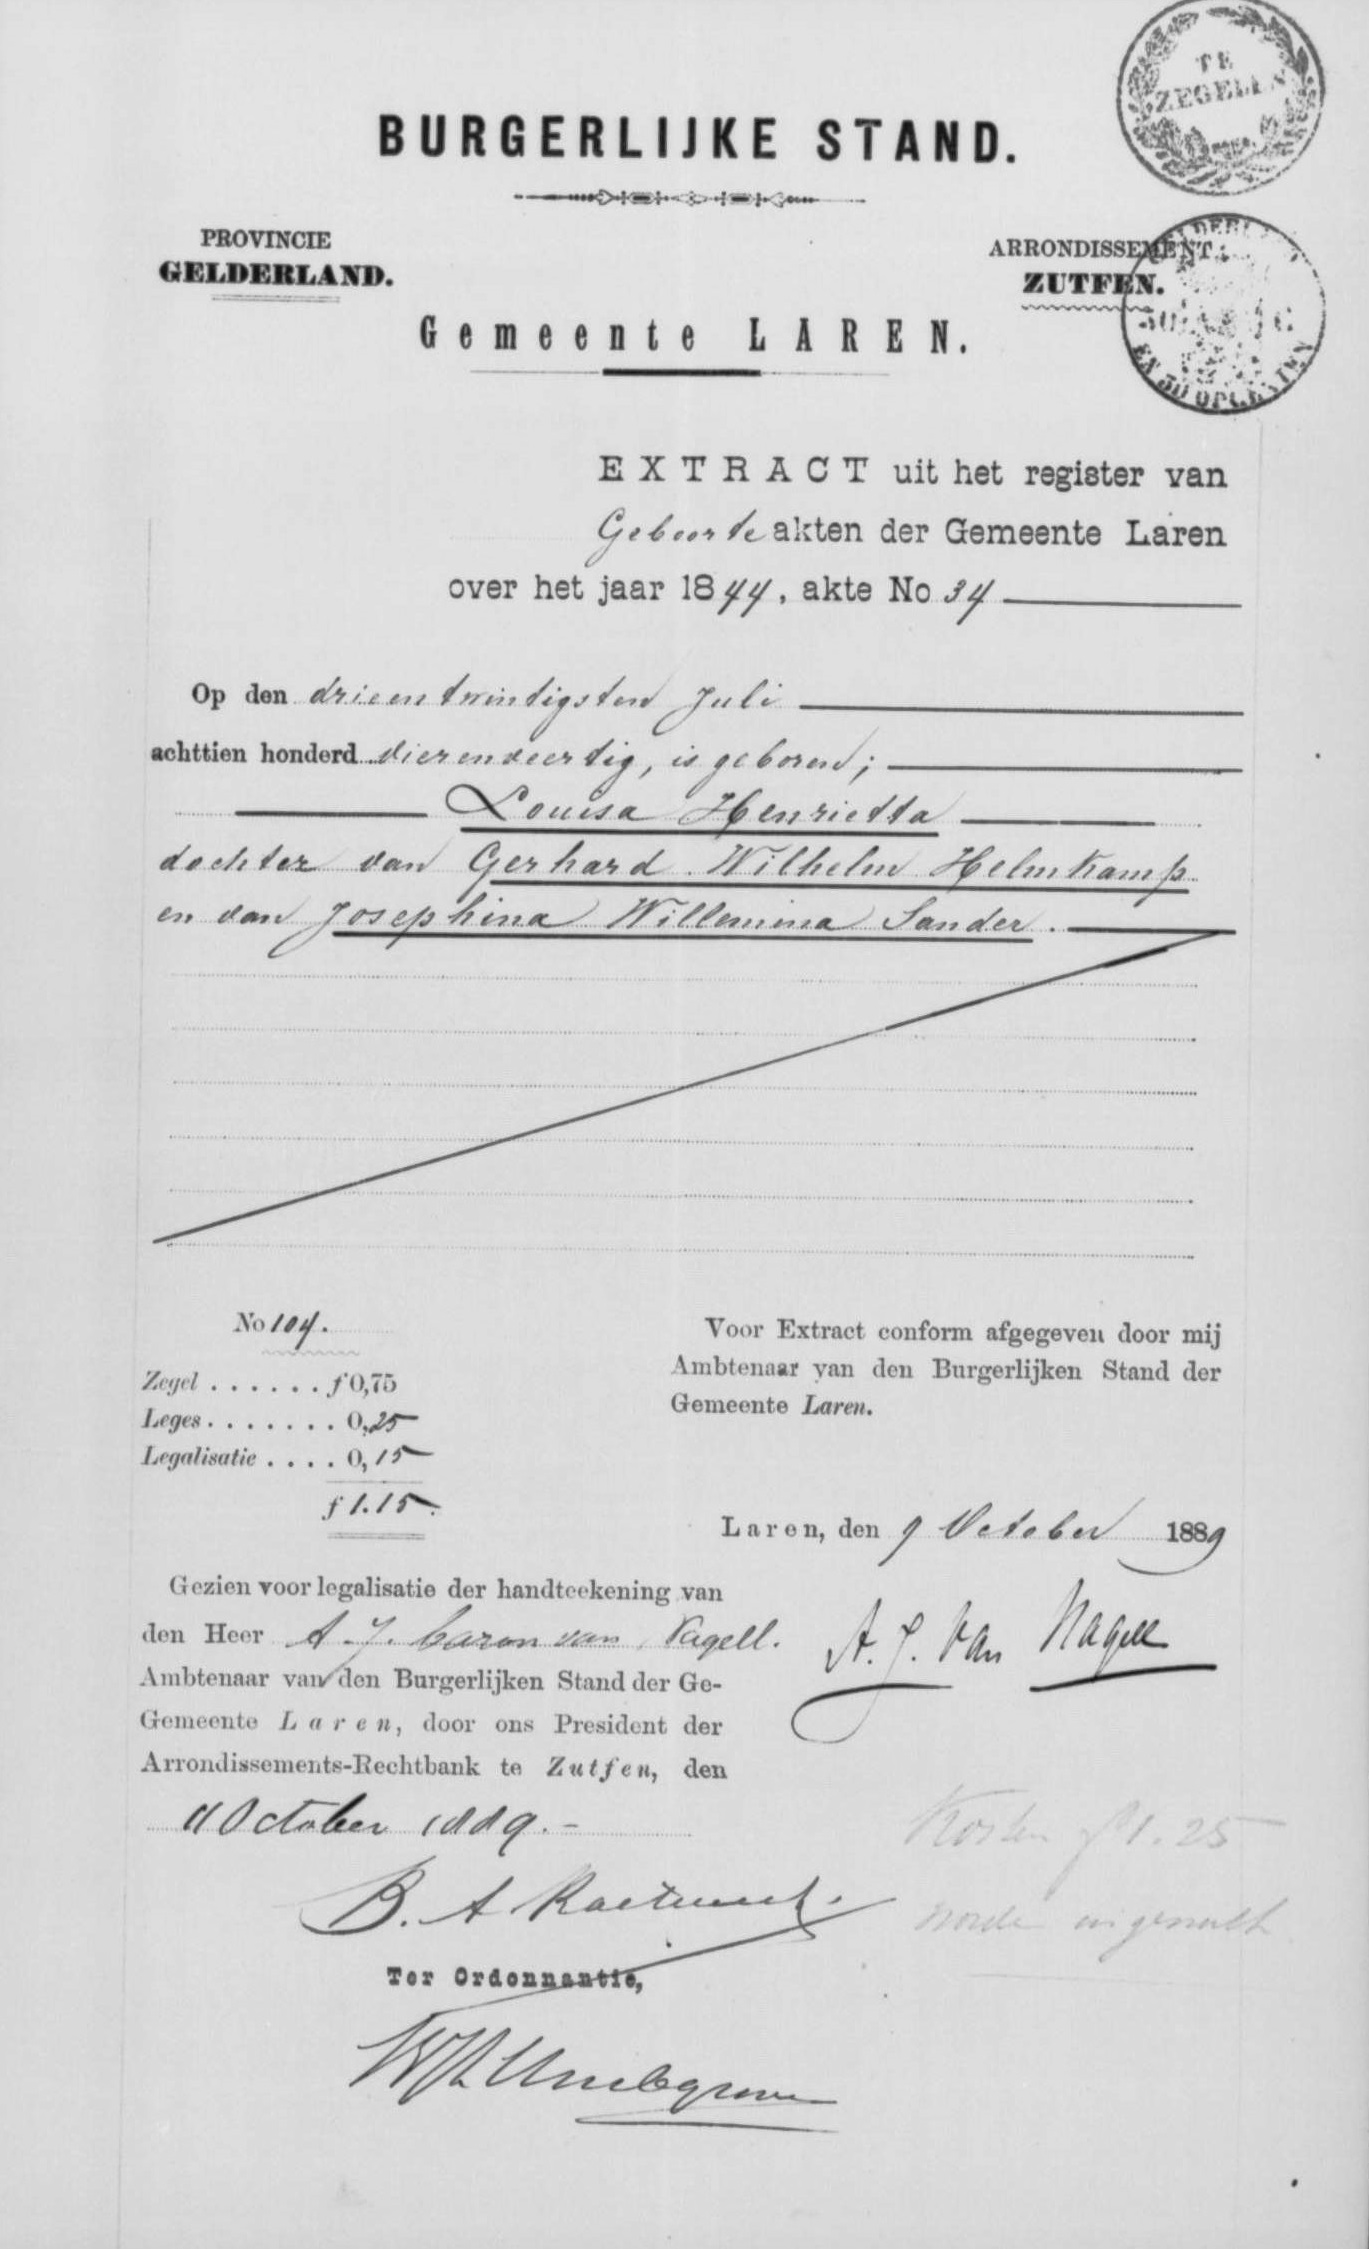 TE
ZEGELEN
BURGERLIJKE STAND.
PROVINCIE
GELDERLAND.
ARRONDISSEMENT
ZUTFEN.
EN 50 OPCENTEN
Gemeente LAREN.
EXTRACT uit het register van
Geboorte akten der Gemeente Laren
over het jaar 1844, akte No 34
Op den drieentwintigsten Juli
achttien honderd vierenveertig, is geboren;
Louisa Henrietta
dochter van Gerhard Wilhelm Helmkamp
en van Josephina Willemina Sander.
No 104.
Zegel . . . . . . f 0,75
Leges . . . . . . . 0,25
Legalisatie . . . . 0,15
f 1.15.
Voor Extract conform afgegeven door mij
Ambtenaar van den Burgerlijken Stand der
Gemeente Laren.
Laren, den 9 October 1889
Gezien voor legalisatie der handteekening van
den Heer A. J. baron van Nagell.
Ambtenaar van den Burgerlijken Stand der Ge-
Gemeente Laren, door ons President der
Arrondissements-Rechtbank te Zutfen, den
11 October 1889.-
A. J. Van Nagell
Kosten f 1.25
B. A.
Ter Ordonnantie,